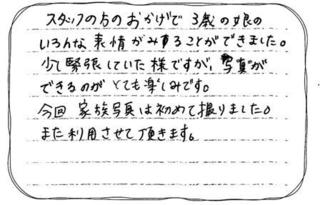 スタッフの方のおかげで 3歳の娘の
いろんな表情がみることができました。
少し緊張していた様ですが、写真が
できるのがとても楽しみです。
今回 家族写真は初めて撮りました。
また利用させて頂きます。